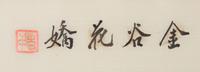 金谷花嬌